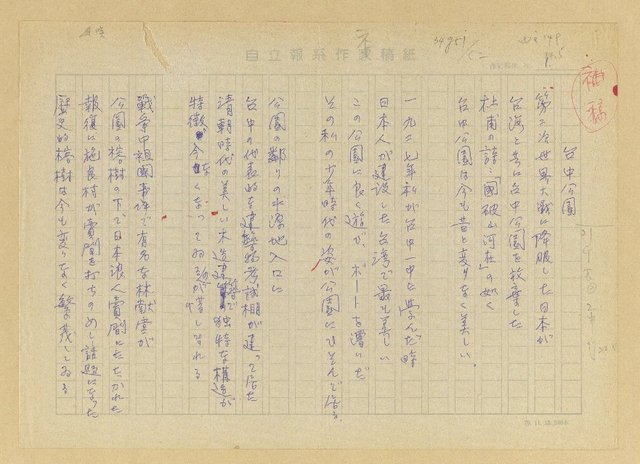 自立報系作家稿紙
補稿
台中公園
第二次世界大戦に降服した日本が
台湾と共に台中公園を放棄した
杜甫の詩「国破山河在」の如く
台中公園は今も昔と変りなく美しい。
一九二七年私が台中一中に学んだ時
日本人が建設した台湾で最も美しい
この公園に良く遊び、ボートを漕いだ
その私の少年時代の姿が公園にひそんで居る。
公園の隣りの水源地入口に
台中の代表的な建築物考試棚が建って居た
清朝時代の美しい木造建築で独特な構造が
特徴が今なくなってゐるのが惜しまれる
戦争中祖国事件で有名な林献堂が
公園の榕樹の下で日本浪人賣間にたたかれた
報復に施良村が賣間を打ちのめし話題になった
歴史的榕樹は今も変りなく繁茂してゐる